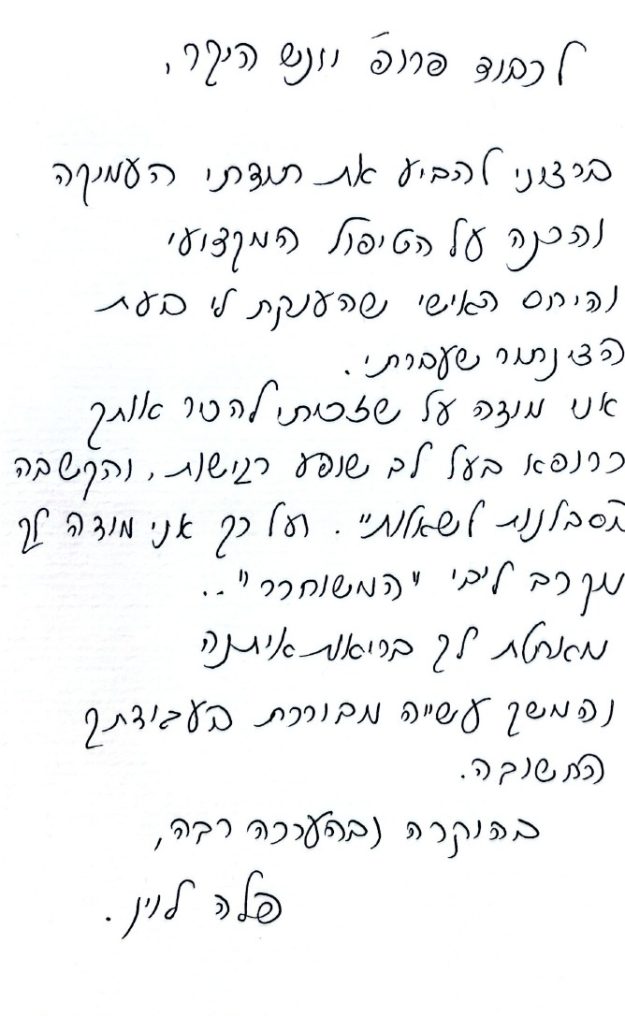 לכבוד פרופ' וונש היקר,
ברצוני להביע את תודתי העמוקה
והכנה על הטיפול המקצועי
והיחס האישי שהענקת לי בעת
הצינתור שעברתי.
אני מודה על שזכותי להכיר אותך
כרופא בעל לב שופע רגישות, והקשבה
בסבלנות לשאלותי". ועל כך אני מודה לך
מקרב ליבי "המשוחרר"..
מאחלת לך בריאות איתנה
והמשך עשייה מבורכת בעבודתך
החשובה.
בהוקרה ובהערכה רבה,
פלה לוין.